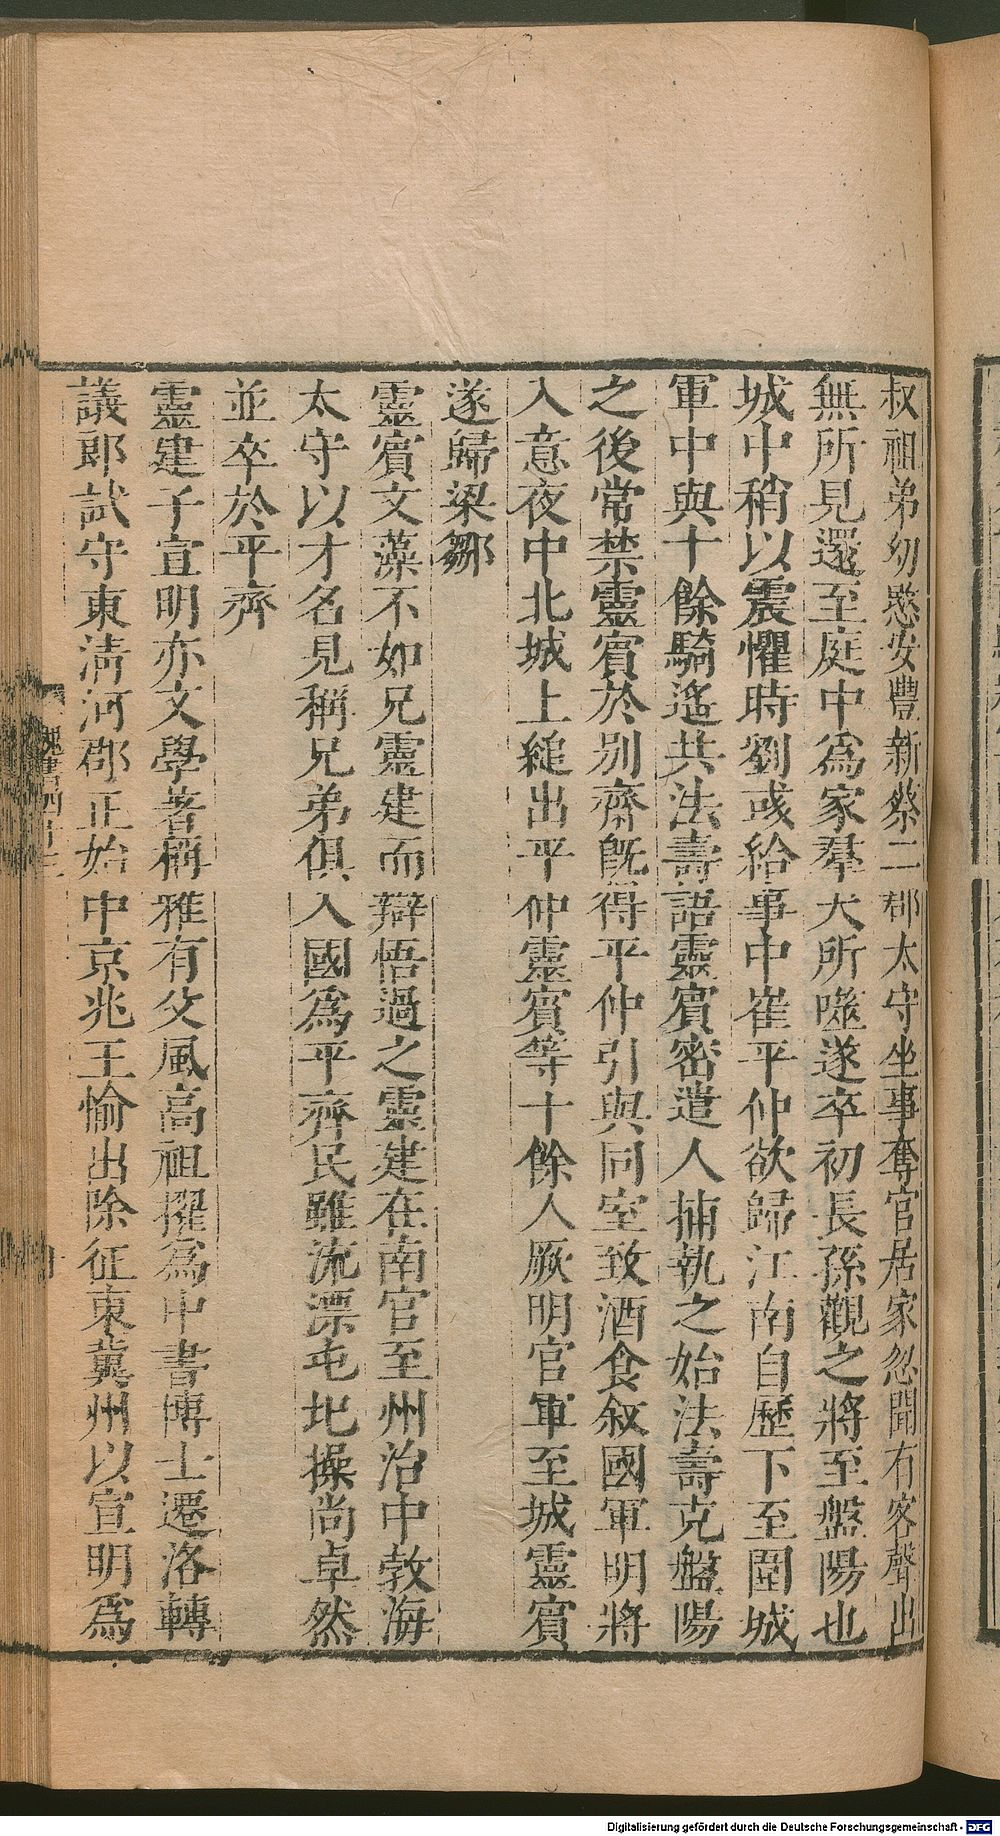 叔祖弟幼愍安豐新蔡二郡太守坐事奪官居家忽聞有客聲出
無所見還至庭中爲家羣犬所噬遂卒初長孫觀之將至盤陽也
城中稍以震懼時劉彧給事中崔平仲欲歸江南自歷下至圍城
軍中與十餘騎遙共法壽語靈賓密遣人捕執之始法壽克盤陽
之後常禁靈賓於別齋旣得平仲引與同室致酒食叙國軍明將
入意夜中北城上縋出平仲靈賓等十餘人厥明官軍至城靈賓
遂歸梁鄒
靈賓文藻不如兄靈建而辯悟過之靈建在南官至州治中敎海
太守以才名見稱兄弟俱入國爲平齊民雖流漂屯圮操尚卓然
並卒於平齊
靈建子宣明亦文學著稱雅有父風高祖擢爲中書博士遷洛轉
議郎試守東淸河郡正始中京兆王愉出除征東冀州以宣明爲
魏書四十三
Digitalisierung gefördert durch die Deutsche Forschungsgemeinschaft - DFG